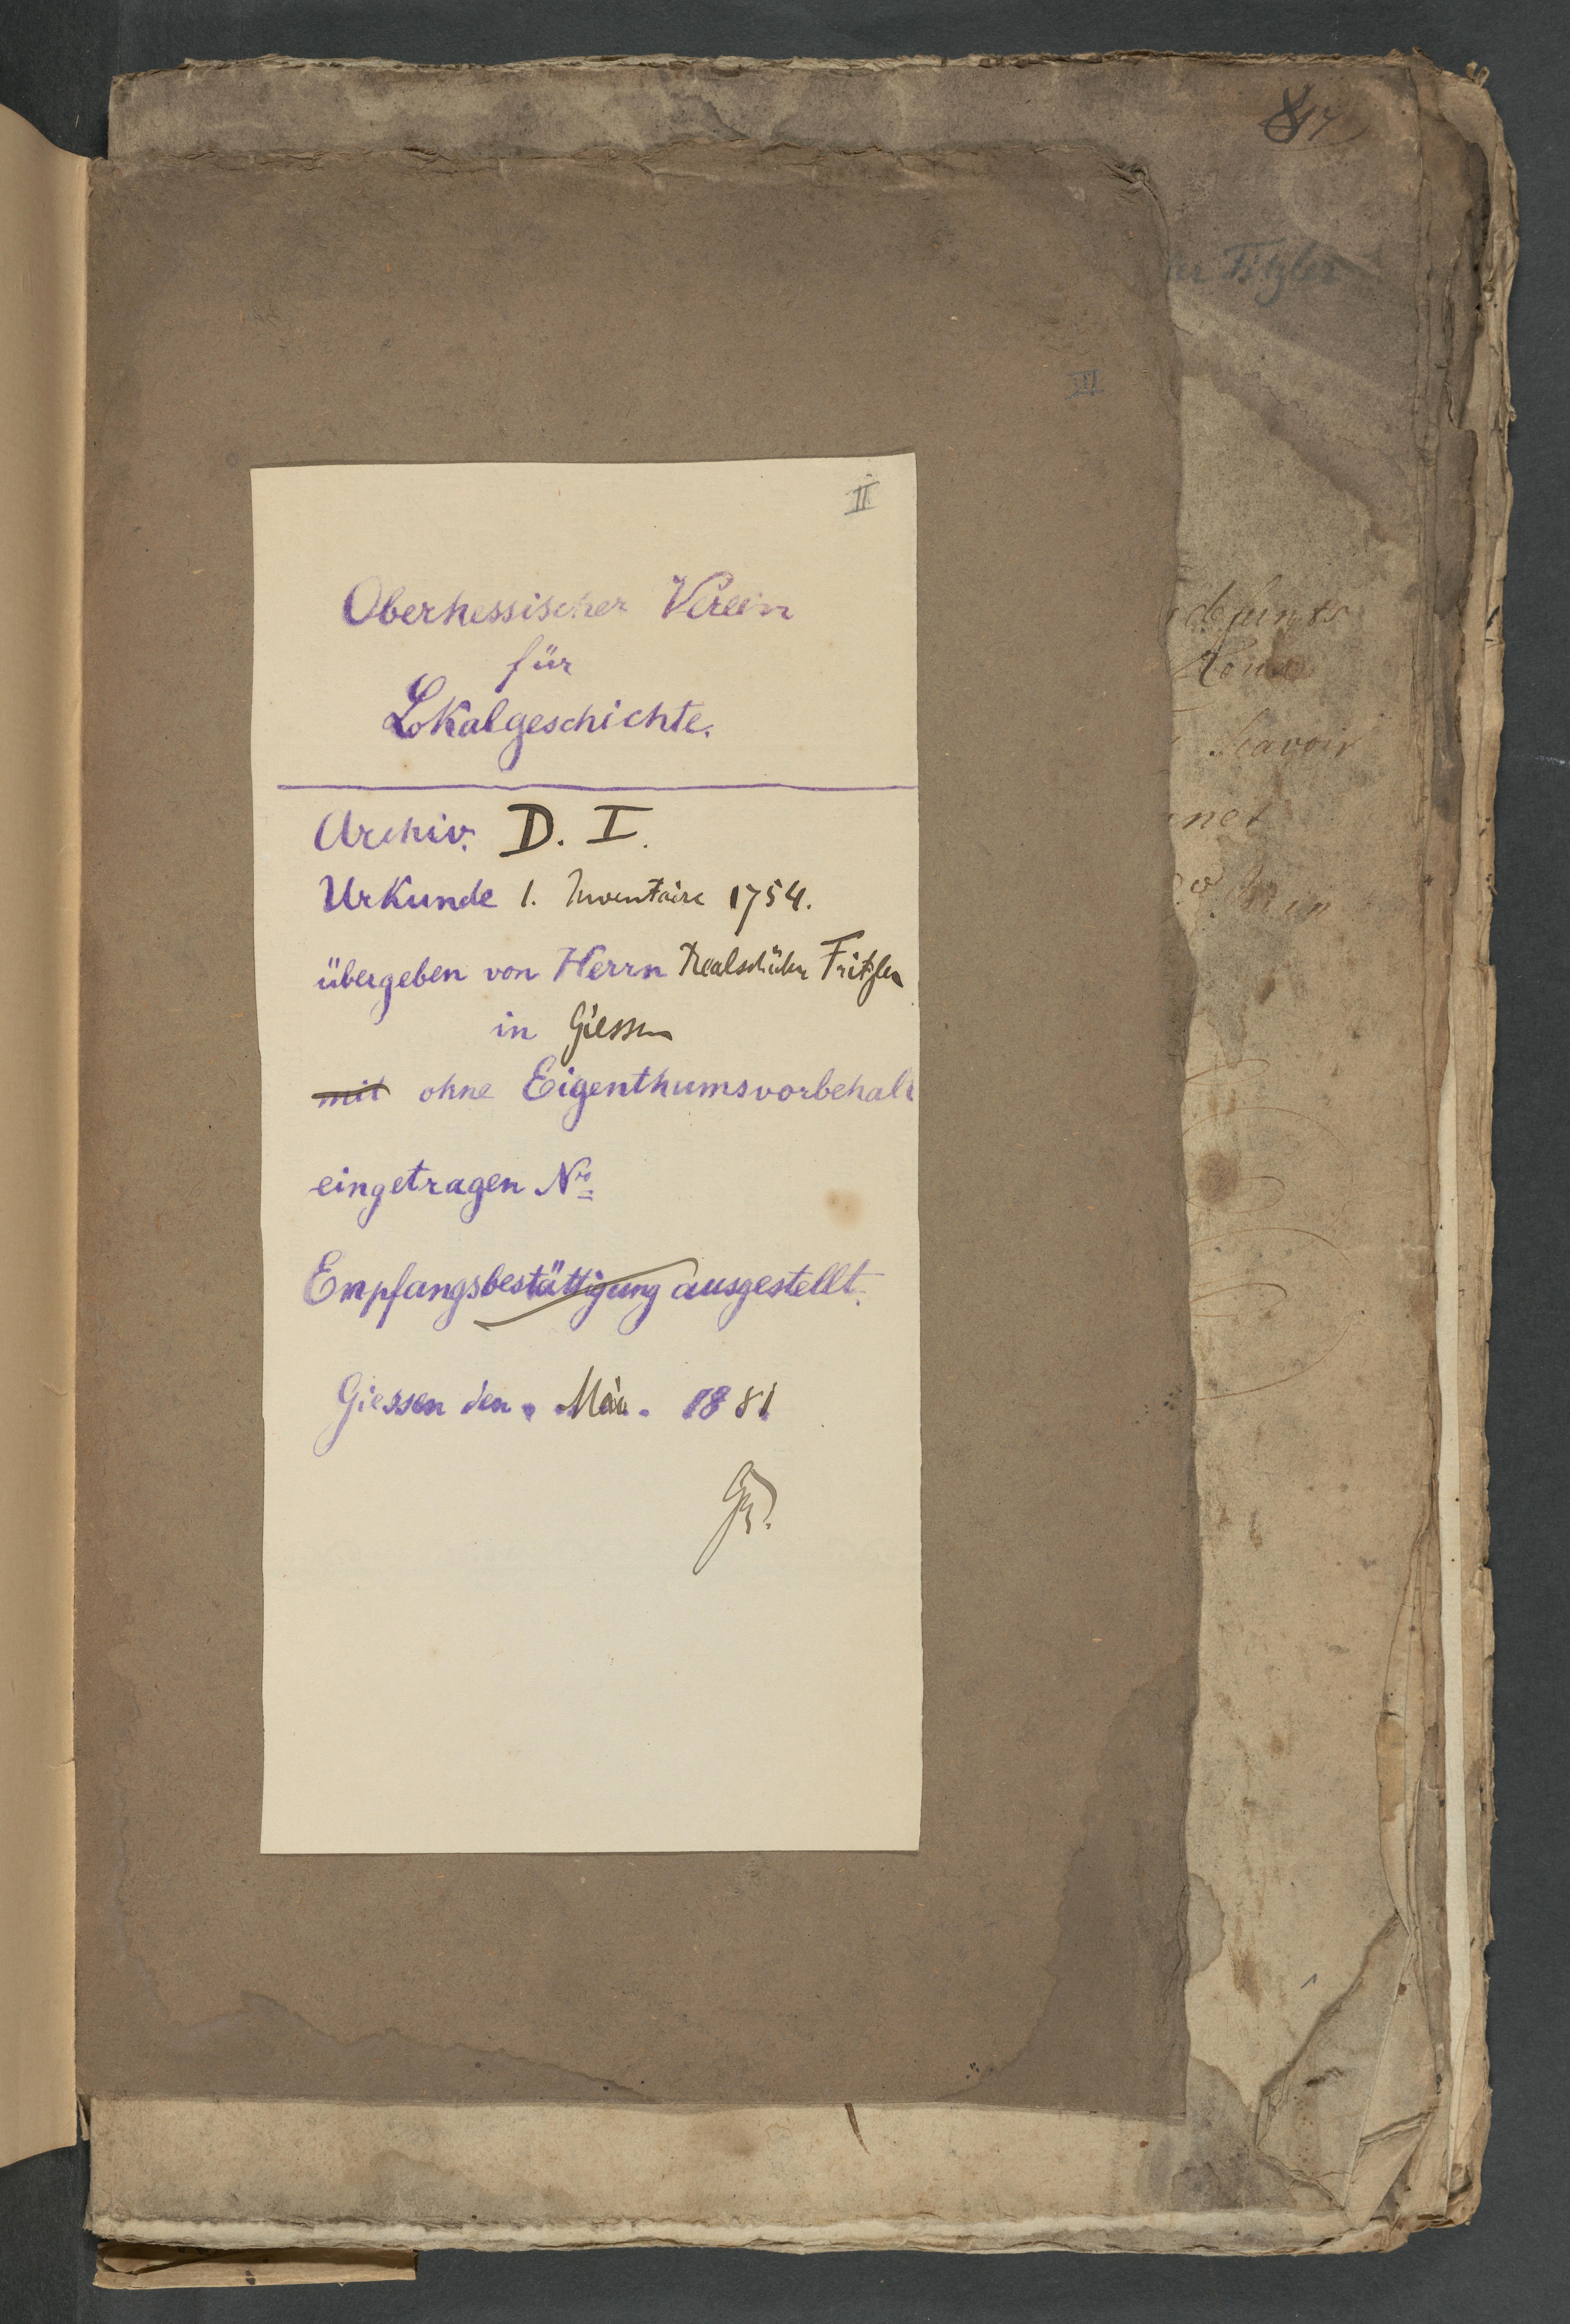 II
Oberhessischer Verein
für
Lokalgeschichte.
Archiv. D. I.
Urkunde 1. Inventaire 1754.
übergeben von Herrn Realschüler Fritzler
in Giessen
mit ohne Eigenthumsvorbehalt
eingetragen No
Empfangsbestättigung ausgestellt.
Giessen den Mai 1881
defunts
Scavoir